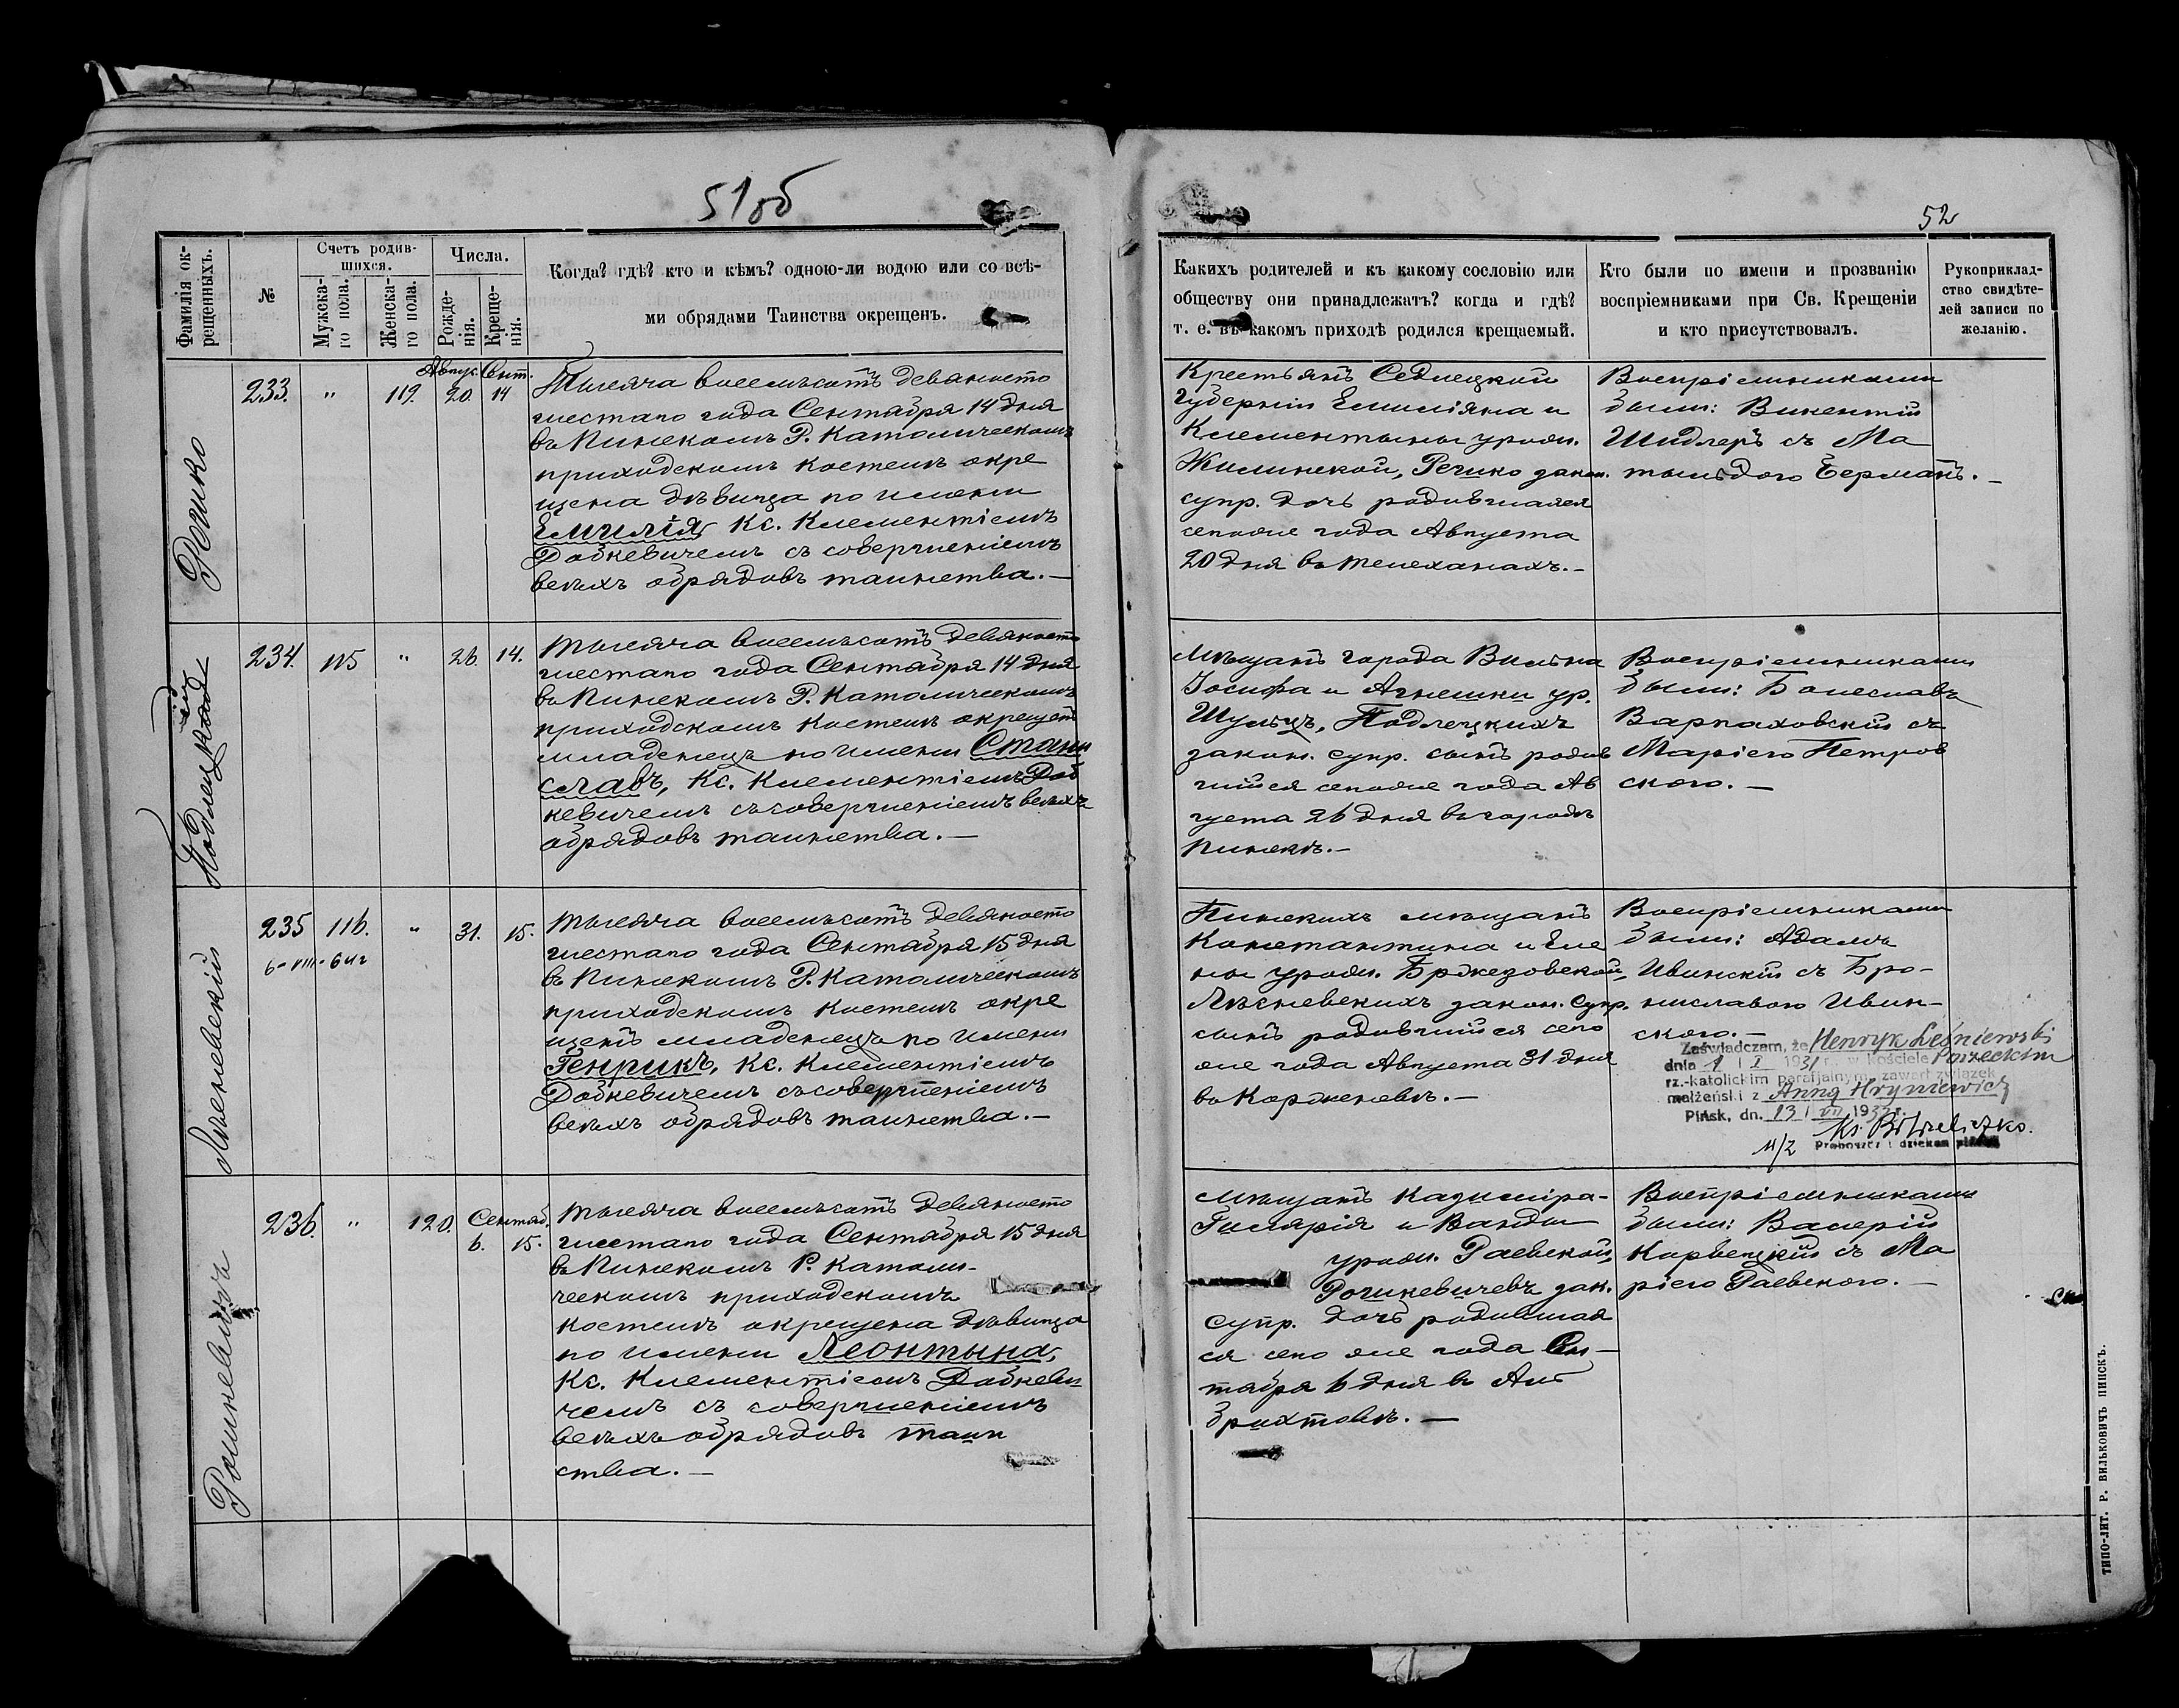 51об
Фамилія ок-
рещенныхъ.
№
Счетъ родив-
шихся.
Мужска-
го пола.
Женска-
го пола.
Числа.
Рожде-
нія.
Креще-
нія.
Когда? гдѣ? кто и кѣмъ? одною-ли водою или со всѣ-
ми обрядами Таинства окрещенъ.
233.
"
119.
Авгус.
20.
Сент.
14
Тысяча восемьсотъ девяносто
шестаго года Сентября 14 дня
въ Пинскомъ Р. Католическомъ
приходскомъ костелѣ окре
щена дѣвица по имени
Емилія, Кс. Клементіемъ
Добкевичемъ съ совершеніемъ
всѣхъ обрядовъ таинства.—
234.
115
"
26.
14.
Тысяча восемьсотъ девяносто
шестаго года Сентября 14 дня
въ Пинскомъ Р. Католическомъ
приходскомъ костелѣ окрещенъ
младенецъ по имени Стани
славъ, Кс. Клементіемъ Доб
кевичемъ съ совершеніемъ всѣхъ
обрядовъ таинства.—
Лѣсневскій
235
116.
"
31.
15.
6-VIII-64г
Тысяча восемьсотъ девяносто
шестаго года Сентября 15 дня
въ Пинскомъ Р. Католическомъ
приходскомъ костелѣ окре
щенъ младенецъ по имени
Генрикъ, Кс. Клементіемъ
Добкевичемъ съ совершеніемъ
всѣхъ обрядовъ таинства.—
236.
"
120.
Сентяб.
6.
15.
Тысяча восемьсотъ девяносто
шестаго года Сентября 15 дня
въ Пинскомъ Р. Католи-
ческомъ приходскомъ
костелѣ окрещена дѣвица
по имени Леонтына,
Кс. Клементіемъ Добкеви
чемъ съ совершеніемъ
всѣхъ обрядовъ таин
ства.—
52
Какихъ родителей и къ какому сословію или
обществу они принадлежатъ? когда и гдѣ?
т. е. въ какомъ приходѣ родился крещаемый.
Кто были по имени и прозванію
воспріемниками при Св. Крещеніи
и кто присутствовалъ.
Рукоприклад-
ство свидѣте-
лей записи по
желанію.
Крестьянъ Седлецкой
губерніи Емиліяна и
Клементыны урожд.
Жилинской, закон.
супр. дочь родившаяся
сегоже года Августа
20 дня въ Телеханахъ.—
Воспріемниками
были: Викентій
Шидлеръ съ Ма
тыльдою Берманъ.—
Мѣщанъ города Вильна
Іосифа и Агнешки ур.
Шульцъ, Подлецкихъ
закон. супр. сынъ родив
шійся сегоже года Ав
густа 26 дня въ городѣ
Пинскѣ.—
Воспріемниками
были: Болеславъ
Варпаховскій съ
Маріею Петров
скою.—
Пинскихъ мѣщанъ
Константина и Еле
ны урожд. Бржезовской,
Лѣсневскихъ закон. супр.
сынъ родившійся сего
же года Августа 31 дня
въ Корженевѣ.—
Воспріемниками
были: Адамъ
Ивинскій съ Бро-
ниславою Ивин-
скою.—
Zaświadczam, że Henryk Leśniewski
dnia 1 I 1931 r. w kościele
rz.-katolickim parafjalnym zawarł związek
małżeński z Anną Hryniewicz
Pińsk, dn. 13 VII 193
Proboszcz i dziekan
Мѣщанъ Казиміра-
Гилярія и Ванды
урожд. Раевской,
Рошкевичевъ зак.
супр. дочь родившая
ся сего же года Сен-
тября 6 дня въ Аль
брихтовѣ.—
Воспріемниками
были: Валерій
съ Ма
ріею Раевскою.—
ТИПО-ЛИТ. Р. ВИЛЬКОВИЧЪ ПИНСКЪ.